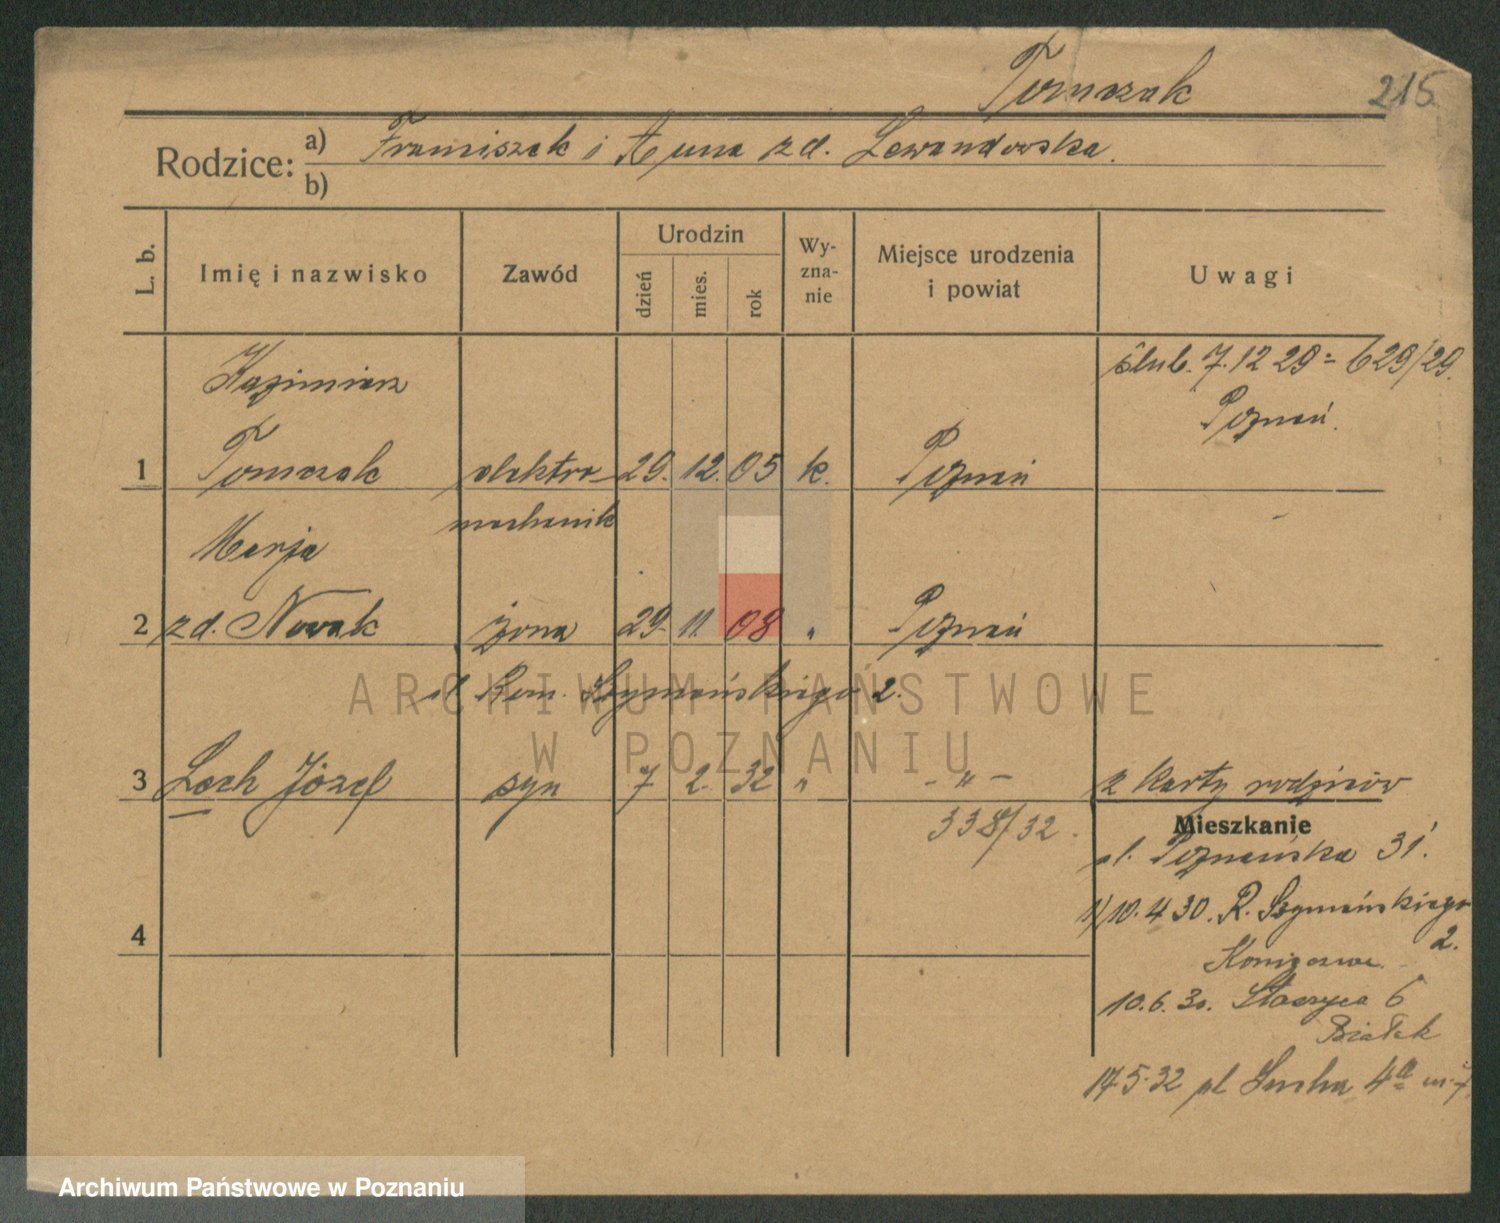 Tomczak
215
Rodzice:
a) Franciszek i Anna zd. Lewandowska.
b)
L. b.
Imię i nazwisko
Zawód
Urodzin
dzień
mies.
rok
Wy-
zna-
nie
Miejsce urodzenia
i powiat
Uwagi
Kazimierz
ślub. 7.12 29 = 629/29.
Poznań.
1 Tomczak elektro- 29. 12. 05 k. Poznań
mechanik
Marja
2 zd. Nowak żona 29. 11. 08 " Poznań
ul. Rom. Szymańskiego 2.
3 Lech Józef syn 7 2. 32 " - " - z karty rodziców
338/32.
Mieszkanie
ul. Poznańska 31.
1/10.4 30. R. Szymańskiego
2.
4
10.6.30. Staszyca 6
Białek
17.5.32 pl Sucha 4a m. 7
ARCHIWUM PAŃSTWOWE
W POZNANIU
Archiwum Państwowe w Poznaniu